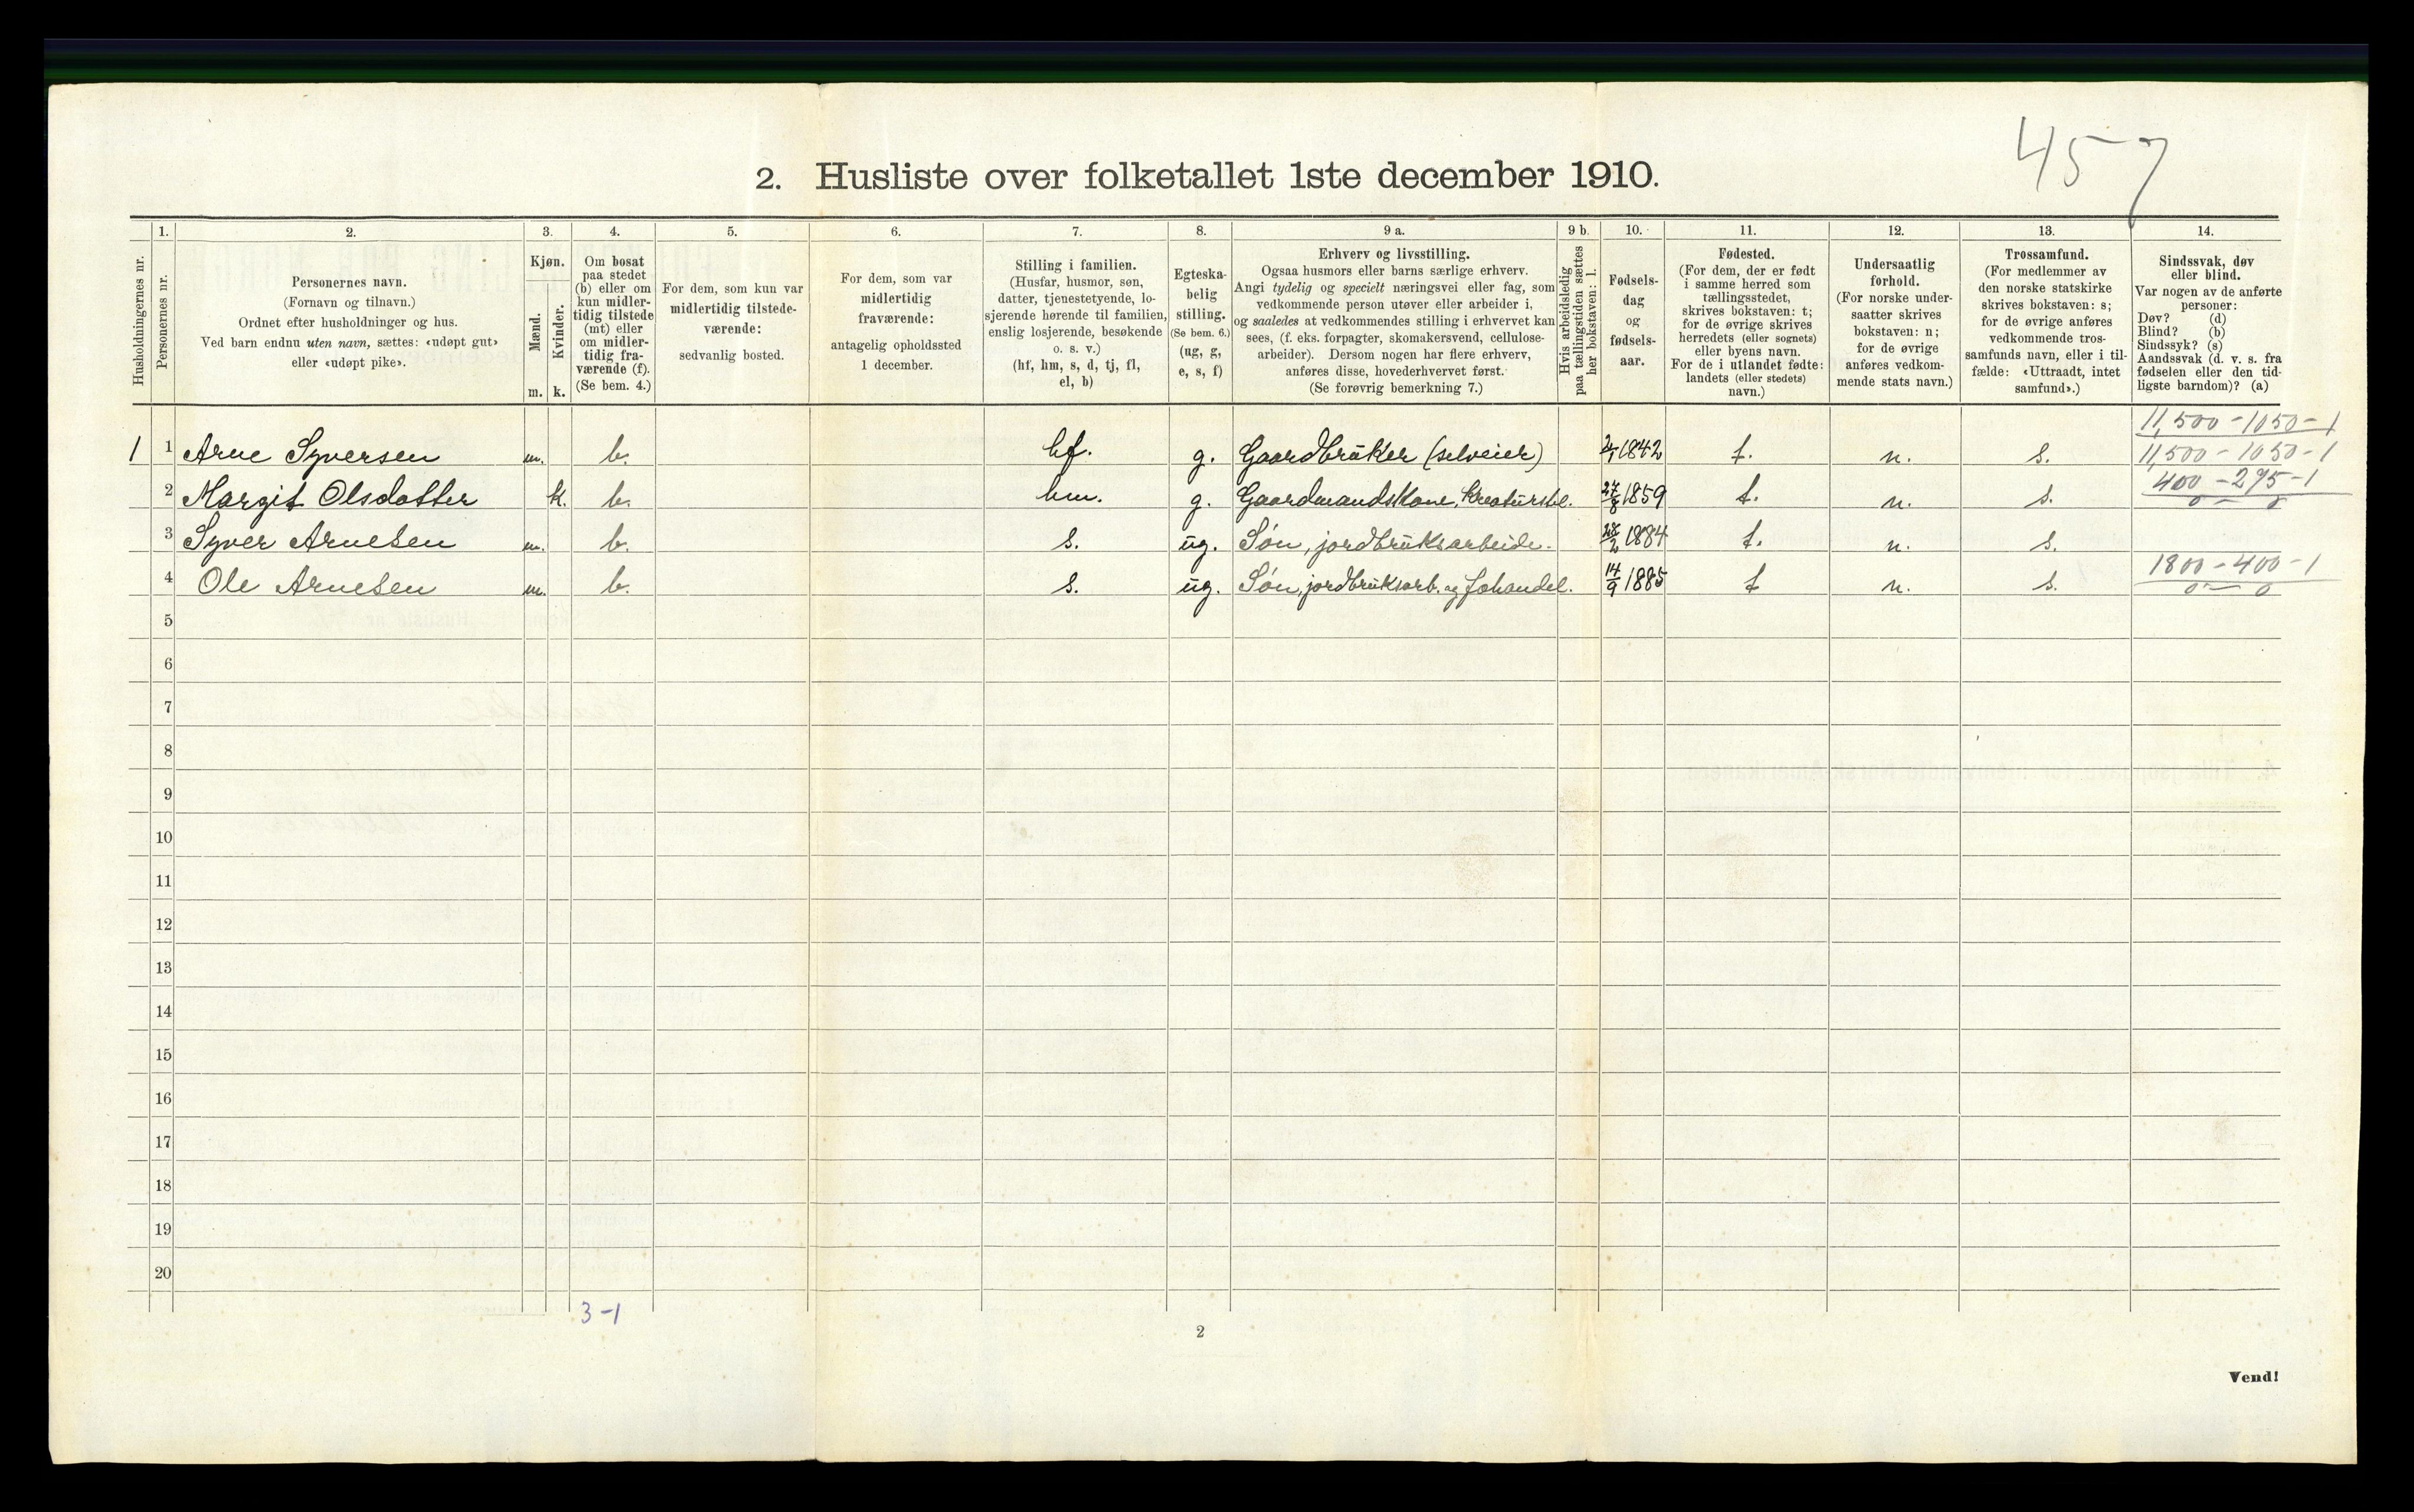 457
2. Husliste over folketallet 1ste december 1910.
Husholdningernes nr.
1.
Personernes nr.
2.
Personernes navn.
(Fornavn og tilnavn.)
Ordnet efter husholdninger og hus.
Ved barn endnu uten navn, sættes: «udøpt gut»
eller «udøpt pike».
3.
Kjøn.
Mænd.
Kvinder.
m. k.
4.
Om bosat
paa stedet
(b) eller om
kun midler-
tidig tilstede
(mt) eller
om midler-
tidig fra-
værende (f).
(Se bem. 4.)
5.
For dem, som kun var
midlertidig tilstede-
værende:
sedvanlig bosted.
6.
For dem, som var
midlertidig
fraværende:
antagelig opholdssted
1 december.
7.
Stilling i familien.
(Husfar, husmor, søn,
datter, tjenestetyende, lo-
sjerende hørende til familien,
enslig losjerende, besøkende
o. s. v.)
(hf, hm, s, d, tj, fl,
el, b)
8.
Egteska-
belig
stilling.
(Se bem. 6.)
(ug, g,
e, s, f)
9 a.
Erhverv og livsstilling.
Ogsaa husmors eller barns særlige erhverv.
Angi tydelig og specielt næringsvei eller fag, som
vedkommende person utøver eller arbeider i,
og saaledes at vedkommendes stilling i erhvervet kan
sees, (f. eks. forpagter, skomakersvend, cellulose-
arbeider). Dersom nogen har flere erhverv,
anføres disse, hovederhvervet først.
(Se forøvrig bemerkning 7.)
9 b.
Hvis arbeidsledig
paa tællingstiden sættes
her bokstaven: l.
10.
Fødsels-
dag
og
fødsels-
aar.
11.
Fødested.
(For dem, der er født
i samme herred som
tællingsstedet,
skrives bokstaven: t;
for de øvrige skrives
herredets (eller sognets)
eller byens navn.
For de i utlandet fødte:
landets (eller stedets)
navn.)
12.
Undersaatlig
forhold.
(For norske under-
saatter skrives
bokstaven: n;
for de øvrige
anføres vedkom-
mende stats navn.)
13.
Trossamfund.
(For medlemmer av
den norske statskirke
skrives bokstaven: s;
for de øvrige anføres
vedkommende tros-
samfunds navn, eller i til-
fælde: «Uttraadt, intet
samfund».)
14.
Sindssvak, døv
eller blind.
Var nogen av de anførte
personer:
Døv? (d)
Blind? (b)
Sindssyk? (s)
Aandssvak (d. v. s. fra
fødselen eller den tid-
ligste barndom)? (a)
11,500 - 1050 - 1
1 1 Arne Syversen m. b. hf. g. Gaardbruker (selveier) 1842 t. n. s. 11,500 - 1050 - 1
400 - 295 - 1
2 Margit Olsdatter k. b. hm. g. Gaardmandskone, kreaturstel. 27/8 1859 t. n. s. 0 - 0
3 Syver Arnesen m. b. s. ug. Søn, jordbruksarbeide. 28/2 1884 t. n. s.
1800 - 400 - 1
4 Ole Arnesen m. b. s. ug. Søn, jordbruksarb. og fehandel. 14/9 1885 t n. s. 0 - 0
5
6
7
8
9
10
11
12
13
14
15
16
17
18
19
20
3-1
2
Vend!